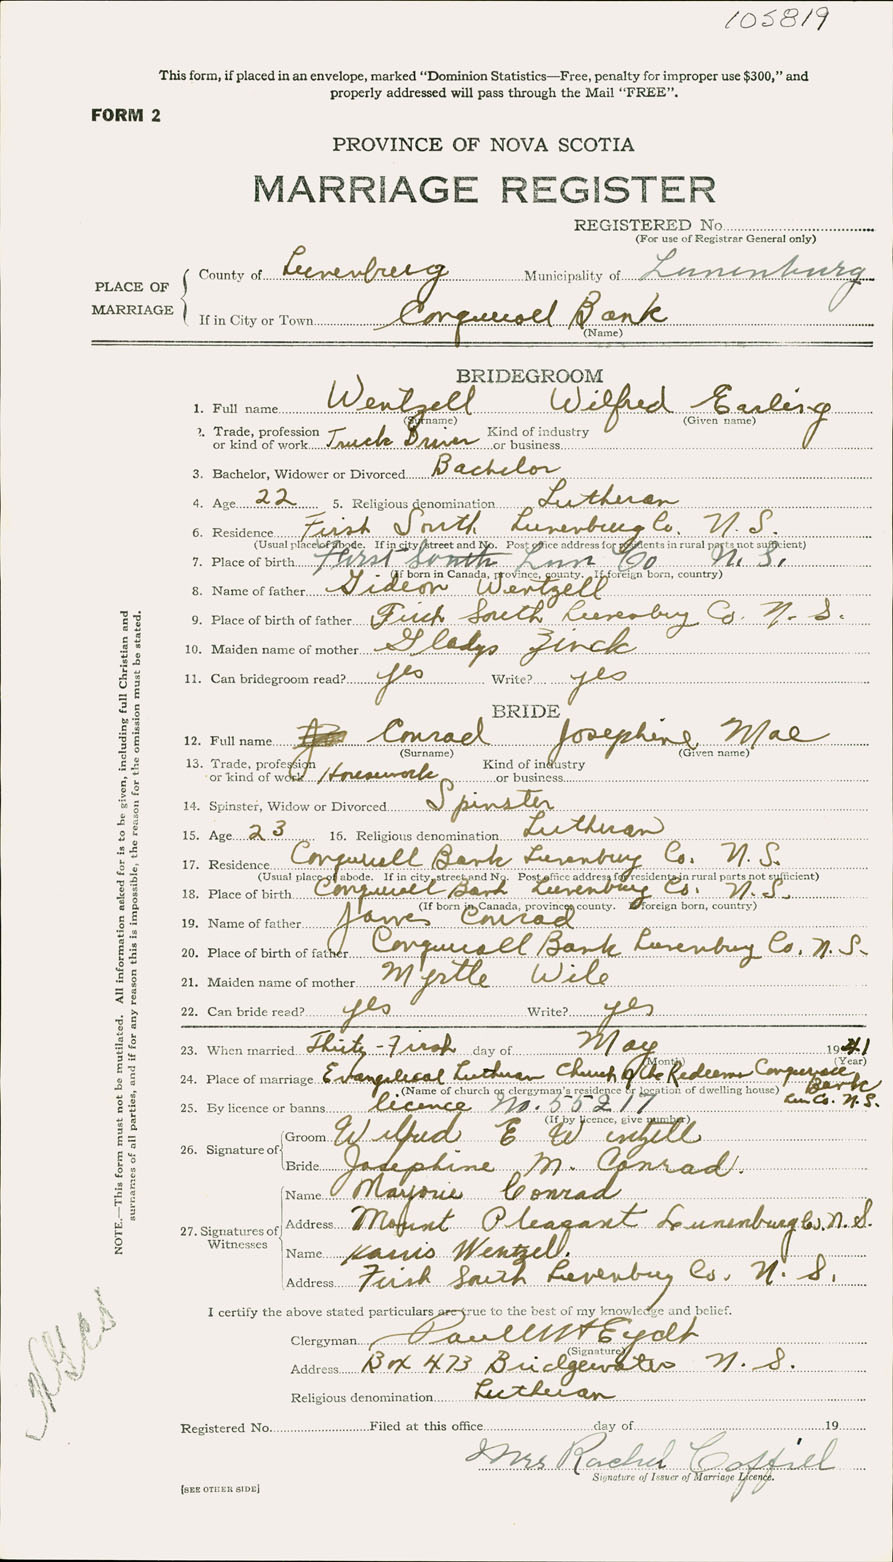 105819
This form, if placed in an envelope, marked "Dominion Statistics—Free, penalty for improper use $300," and
properly addressed will pass through the Mail "FREE".
FORM 2
PROVINCE OF NOVA SCOTIA
MARRIAGE REGISTER
REGISTERED No.
(For use of Registrar General only)
PLACE OF MARRIAGE
County of Lunenburg Municipality of Lunenburg
If in City or Town Conquerall Bank
(Name)
BRIDEGROOM
1. Full name Wentzell Wilfred Earling
(Surname) (Given name)
2. Trade, profession or kind of work Truck Driver Kind of industry or business
3. Bachelor, Widower or Divorced Bachelor
4. Age 22 5. Religious denomination Lutheran
6. Residence First South Lunenburg Co. N.S.
(Usual place of abode. If in city street and No. Post office address for residents in rural parts not sufficient)
7. Place of birth First South Lun Co N.S.
(If born in Canada, province, county. If foreign born, country)
8. Name of father Gideon Wentzell
9. Place of birth of father First South Lunenburg Co. N.S.
10. Maiden name of mother Gladys Zinck
11. Can bridegroom read? yes Write? yes
BRIDE
12. Full name Conrad Josephine Mae
(Surname) (Given name)
13. Trade, profession or kind of work Housework Kind of industry or business
14. Spinster, Widow or Divorced Spinster
15. Age 23 16. Religious denomination Lutheran
17. Residence Conquerall Bank Lunenburg Co. N.S.
(Usual place of abode. If in city, street and No. Post office address for residents in rural parts not sufficient)
18. Place of birth Conquerall Bank Lunenburg Co. N.S.
(If born in Canada, province, county. If foreign born, country)
19. Name of father James Conrad
20. Place of birth of father Conquerall Bank Lunenburg Co. N.S.
21. Maiden name of mother Myrtle Wile
22. Can bride read? yes Write? yes
23. When married Thirty-First day of May 1941
(Month) (Year)
24. Place of marriage Evangelical Lutheran Church of the Redeemer Conquerall
Bank
(Name of church or clergyman's residence or location of dwelling house)
Lun Co. N.S.
25. By licence or banns licence No. 55217
(If by licence, give number)
26. Signature of
Groom Wilfred E Wentzell
Bride Josephine M. Conrad.
27. Signatures of Witnesses
Name Marjorie Conrad
Address Mount Pleasant Lunenburg Co. N.S.
Name Wentzell.
Address First South Lunenburg Co. N.S.
I certify the above stated particulars are true to the best of my knowledge and belief.
Clergyman
(Signature)
Address Box 473 Bridgewater N.S.
Religious denomination Lutheran
Registered No. Filed at this office day of 19
Mrs Rachel Coffill
Signature of Issuer of Marriage Licence.
[SEE OTHER SIDE]
NOTE.—This form must not be mutilated. All information asked for is to be given, including full Christian and
surnames of all parties, and if for any reason this is impossible, the reason for the omission must be stated.